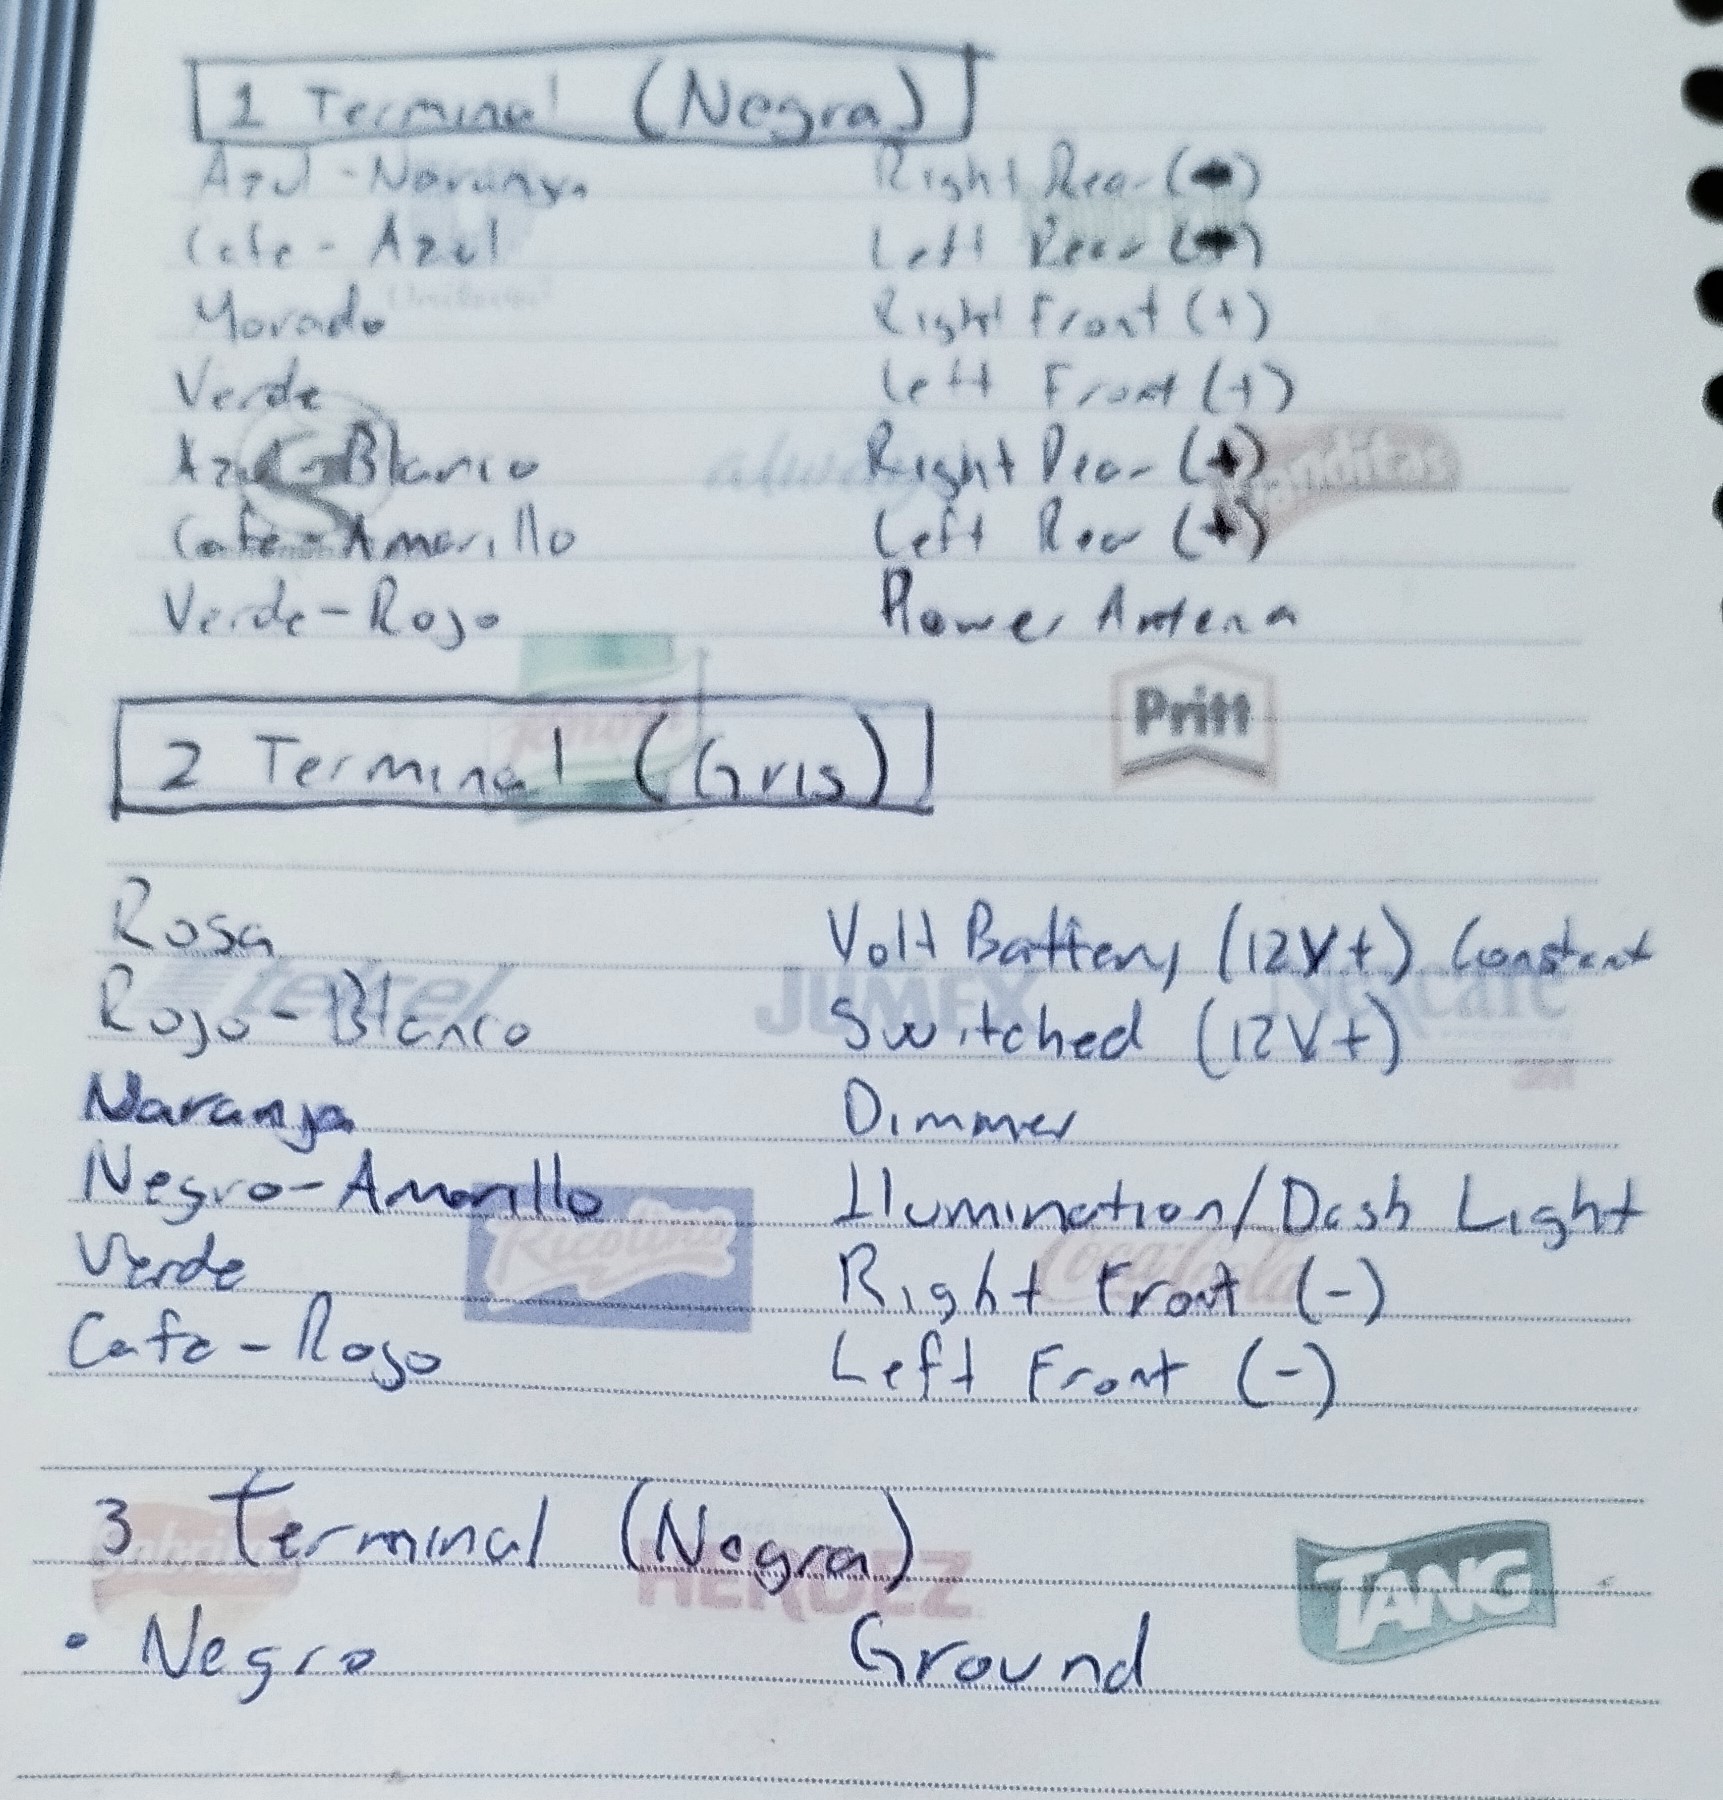 1 Terminal (Negra)
Azul - Naranja Right Rear (-)
Cafe - Azul Left Rear (-)
Morado Right Front (+)
Verde Left Front (+)
Azul - Blanco always Right Rear (+) Panditas
Cafe - Amarillo Left Rear (+)
Verde - Rojo Power Antena
Pritt
2 Terminal (Gris)
Rosa Volt Battery (12V+) Constant
telcel JUMEX Nescafé
Rojo - Blanco Switched (12V+)
3M
Naranja Dimmer
Negro - Amarillo Ilumination/Dash Light
Ricolino Coca-Cola
Verde Right Front (-)
Cafe - Rojo Left Front (-)
3 Terminal (Negra)
HERDEZ TANG
• Negro Ground